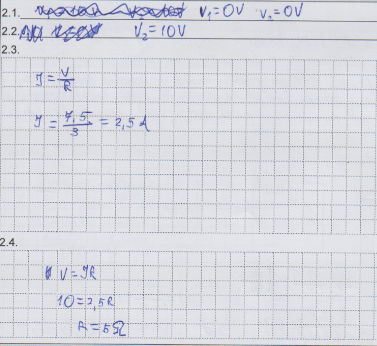 2.1. V₁=0V V₂=0V
2.2. V₂=10V
2.3.
I = V/R
I = 7,5/3 = 2,5 A
2.4.
V=IR
10=2,5R
R=5Ω